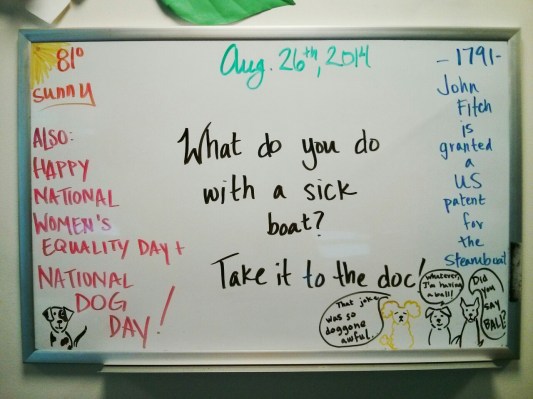 81°
sunny
ALSO:
HAPPY
NATIONAL
WOMEN'S
EQUALITY DAY +
NATIONAL
DOG
DAY!
Aug. 26th, 2014
What do you do
with a sick
boat?
Take it to the doc!
-1791-
John
Fitch
is
granted
a
US
patent
for
the
Steamboat
That joke
was so
doggone
awful.
Whatever,
I'm having
a ball!
Did
you
say
BALL?